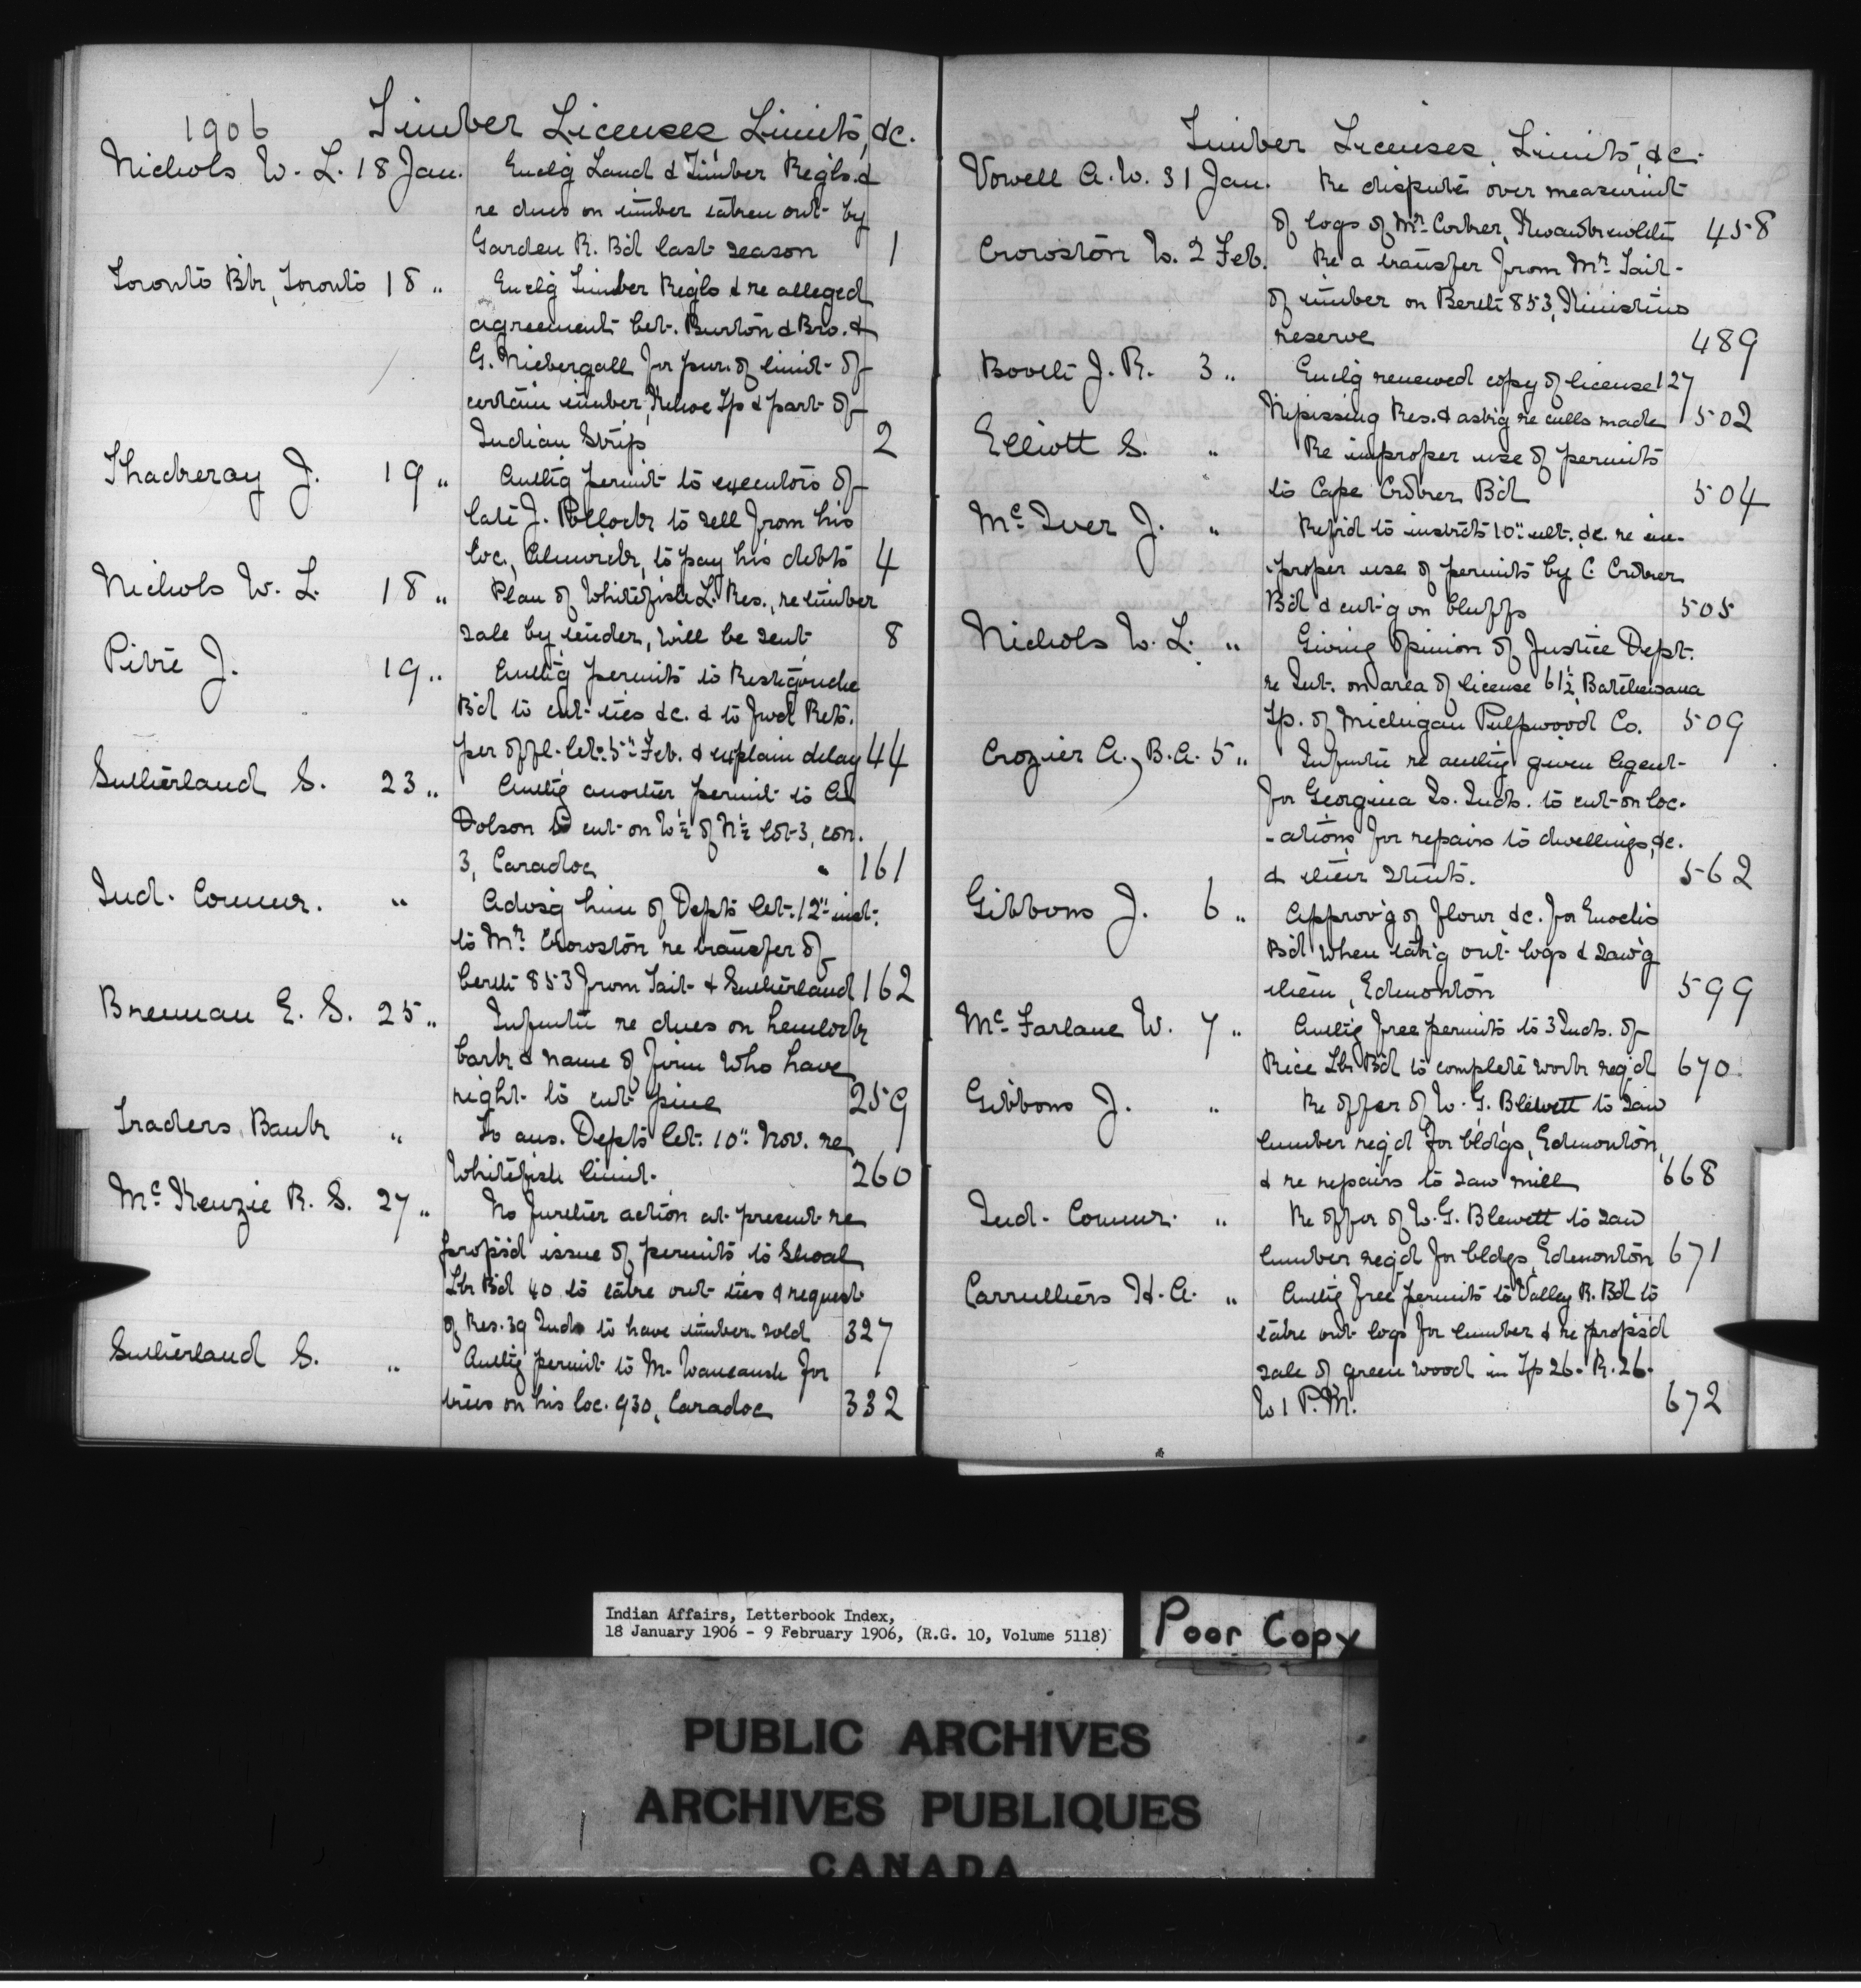 1906 Timber Licenses Limits, &c.
Nichols W. L. 18 Jan. Enclg Land & Timber Regls. &
re dues on timber taken out by
Garden R. Bd last season 1
Toronto Bk, Toronto 18 " Enclg Timber Regls & re alleged
agreement bet. Burton & Bro. &
G. Niebergall for pur. of limit of
certain timber, Kehoe Tp & part of
Indian Strip 2
Thackeray J. 19 " Authg permit to executors of
late J. Pollock to sell from his
loc., Alnwick, to pay his debts 4
Nichols W. L. 18 " Plan of Whitefish L. Res., re timber
sale by tender, will be sent 8
Pitre J. 19 " Authg permits to Restigouche
Bd to cut ties &c. & to fwd Rets.
per offl. let. 5" Feb. & explain delay 44
Sutherland S. 23 " Authg another permit to Al
Dolson to cut on W½ of N½ lot 3, con.
3, Caradoc 161
Ind. Commr. " Advsg him of Depts let. 12" inst.
to Mr. Crowston re transfer of
berth 853 from Tait & Sutherland 162
Brennan E. S. 25 " Infmtn re dues on hemlock
bark & name of firm who have
right to cut pine 259
Traders Bank " To ans. Depts let. 10" Nov. re
Whitefish limit. 260
McKenzie R. S. 27 " No further action at present re
propsd issue of permits to Shoal
Lk Bd 40 to take out ties & request
of Res. 39 Inds to have timber sold 327
Sutherland S. " Authg permit to M. for
ties on his loc. 930, Caradoc 332
Timber Licenses, Limits, &c.
Vowell A. W. 31 Jan. Re dispute over measurmt
of logs of Mr. Corker, Kwawkewlth 458
Crowston W. 2 Feb. Re a transfer from Mr. Tait
of timber on Berth 853, Kinistino
reserve 489
Bovelt J. R. 3 " Enclg renewed copy of license 127
Nipissing Res. & askg re culls made 502
Elliott S. " Re improper use of permits
to Cape Croker Bd 504
McIver J. " Refrd to instrcts 10" ult. &c. re im-
-proper use of permits by C. Croker
Bd & cut'g on bluffs 505
Nichols W. L. " Giving opinion of Justice Dept.
re Int. on area of license 61½ Batchewana
Tp. of Michigan Pulpwood Co. 509
Crozier A., B.A. 5 " Infmtn re authy given Agent
for Georgina Is. Inds. to cut on loc-
-ations for repairs to dwellings, &c.
& their stmts. 562
Gibbons J. 6 " Approv'g of flour &c. for Enochs
Bd when tak'g out logs & saw'g
them, Edmonton 599
McFarlane W. 7 " Authg free permits to 3 Inds. of
Rice Lk Bd to complete work reqd 670
Gibbons J. " Re offer of W. G. Blewett to saw
lumber req'd for bldgs, Edmonton,
& re repairs to saw mill 668
Ind. Commr. " Re offer of W. G. Blewett to saw
lumber reqd for bldgs, Edmonton 671
Carruthers H. A. " Authg free permits to Valley R. Bd to
take out logs for lumber & re propsd
sale of green wood in Tp 26. R. 26.
W 1 P.M. 672
Indian Affairs, Letterbook Index,
18 January 1906 - 9 February 1906, (R.G. 10, Volume 5118)
Poor Copy
PUBLIC ARCHIVES
ARCHIVES PUBLIQUES
CANADA